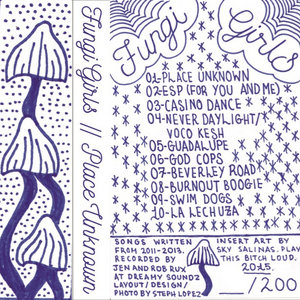 Fungi Girls // Place Unknown
Fungi Girls
01-PLACE UNKNOWN
02-ESP (FOR YOU AND ME)
03-CASINO DANCE
04-NEVER DAYLIGHT/
VOCO KESH
05-GUADALUPE
06-GOD COPS
07-BEVERLEY ROAD
08-BURNOUT BOOGIE
09-SWIM DOGS
10-LA LECHUZA
SONGS WRITTEN
FROM 2011-2013.
RECORDED BY
JEN AND ROB RUX
AT DREAMY SOUNDZ
LAYOUT/DESIGN/
PHOTO BY STEPH LOPEZ
INSERT ART BY
SKY SALINAS. PLAY
THIS BITCH LOUD.
2015.
/200